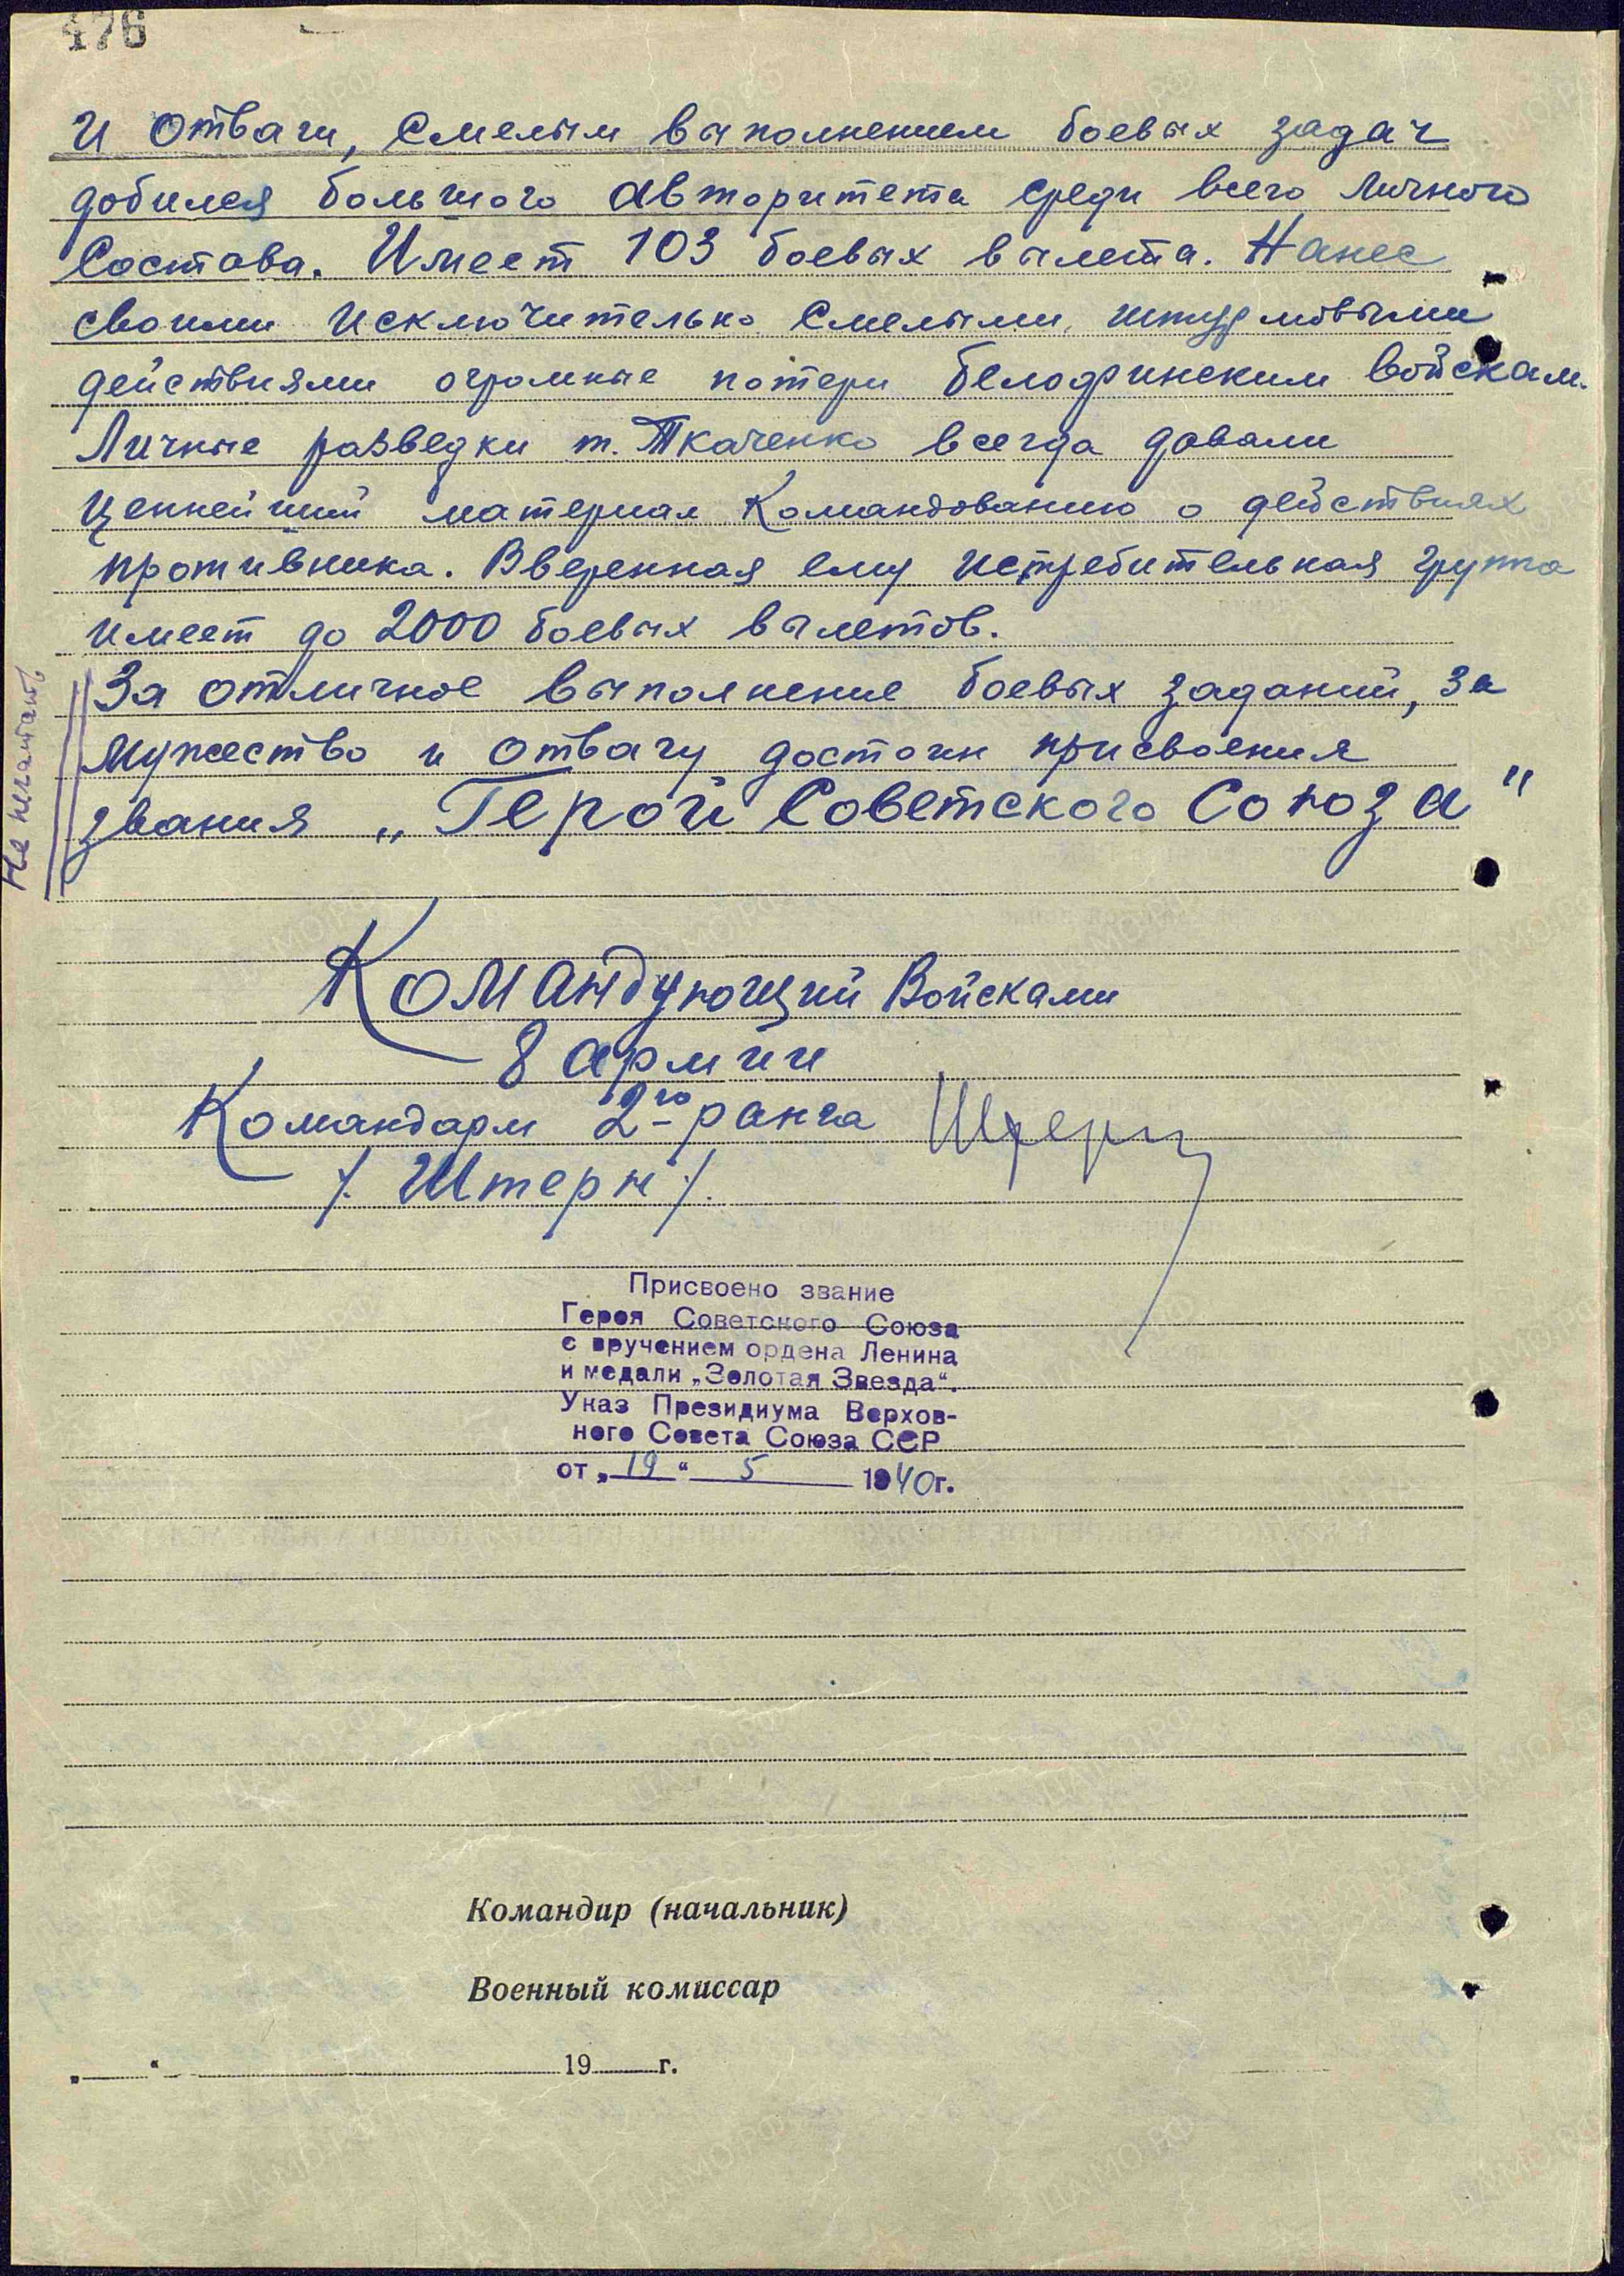 476
и отваги, смелым выполнением боевых задач
добился большого авторитета среди всего личного
состава. Имеет 103 боевых вылета. Нанес
своими исключительно смелыми штурмовыми
действиями огромные потери белофинским войскам.
Личные разведки т. Ткаченко всегда давали
ценнейший материал командованию о действиях
противника. Вверенная ему истребительная группа
имеет до 2000 боевых вылетов.
За отличное выполнение боевых заданий, за
мужество и отвагу достоин присвоения
звания „Герой Советского Союза"
Не печатать
Командующий Войсками
8 армии
Командарм 2го ранга Штерн
/. Штерн ./.
Присвоено звание
Героя Советского Союза
с вручением ордена Ленина
и медали „Золотая Звезда“.
Указ Президиума Верхов-
ного Совета Союза ССР
от „19“ 5 1940г.
Командир (начальник)
Военный комиссар
„____“ ____ 19____г.